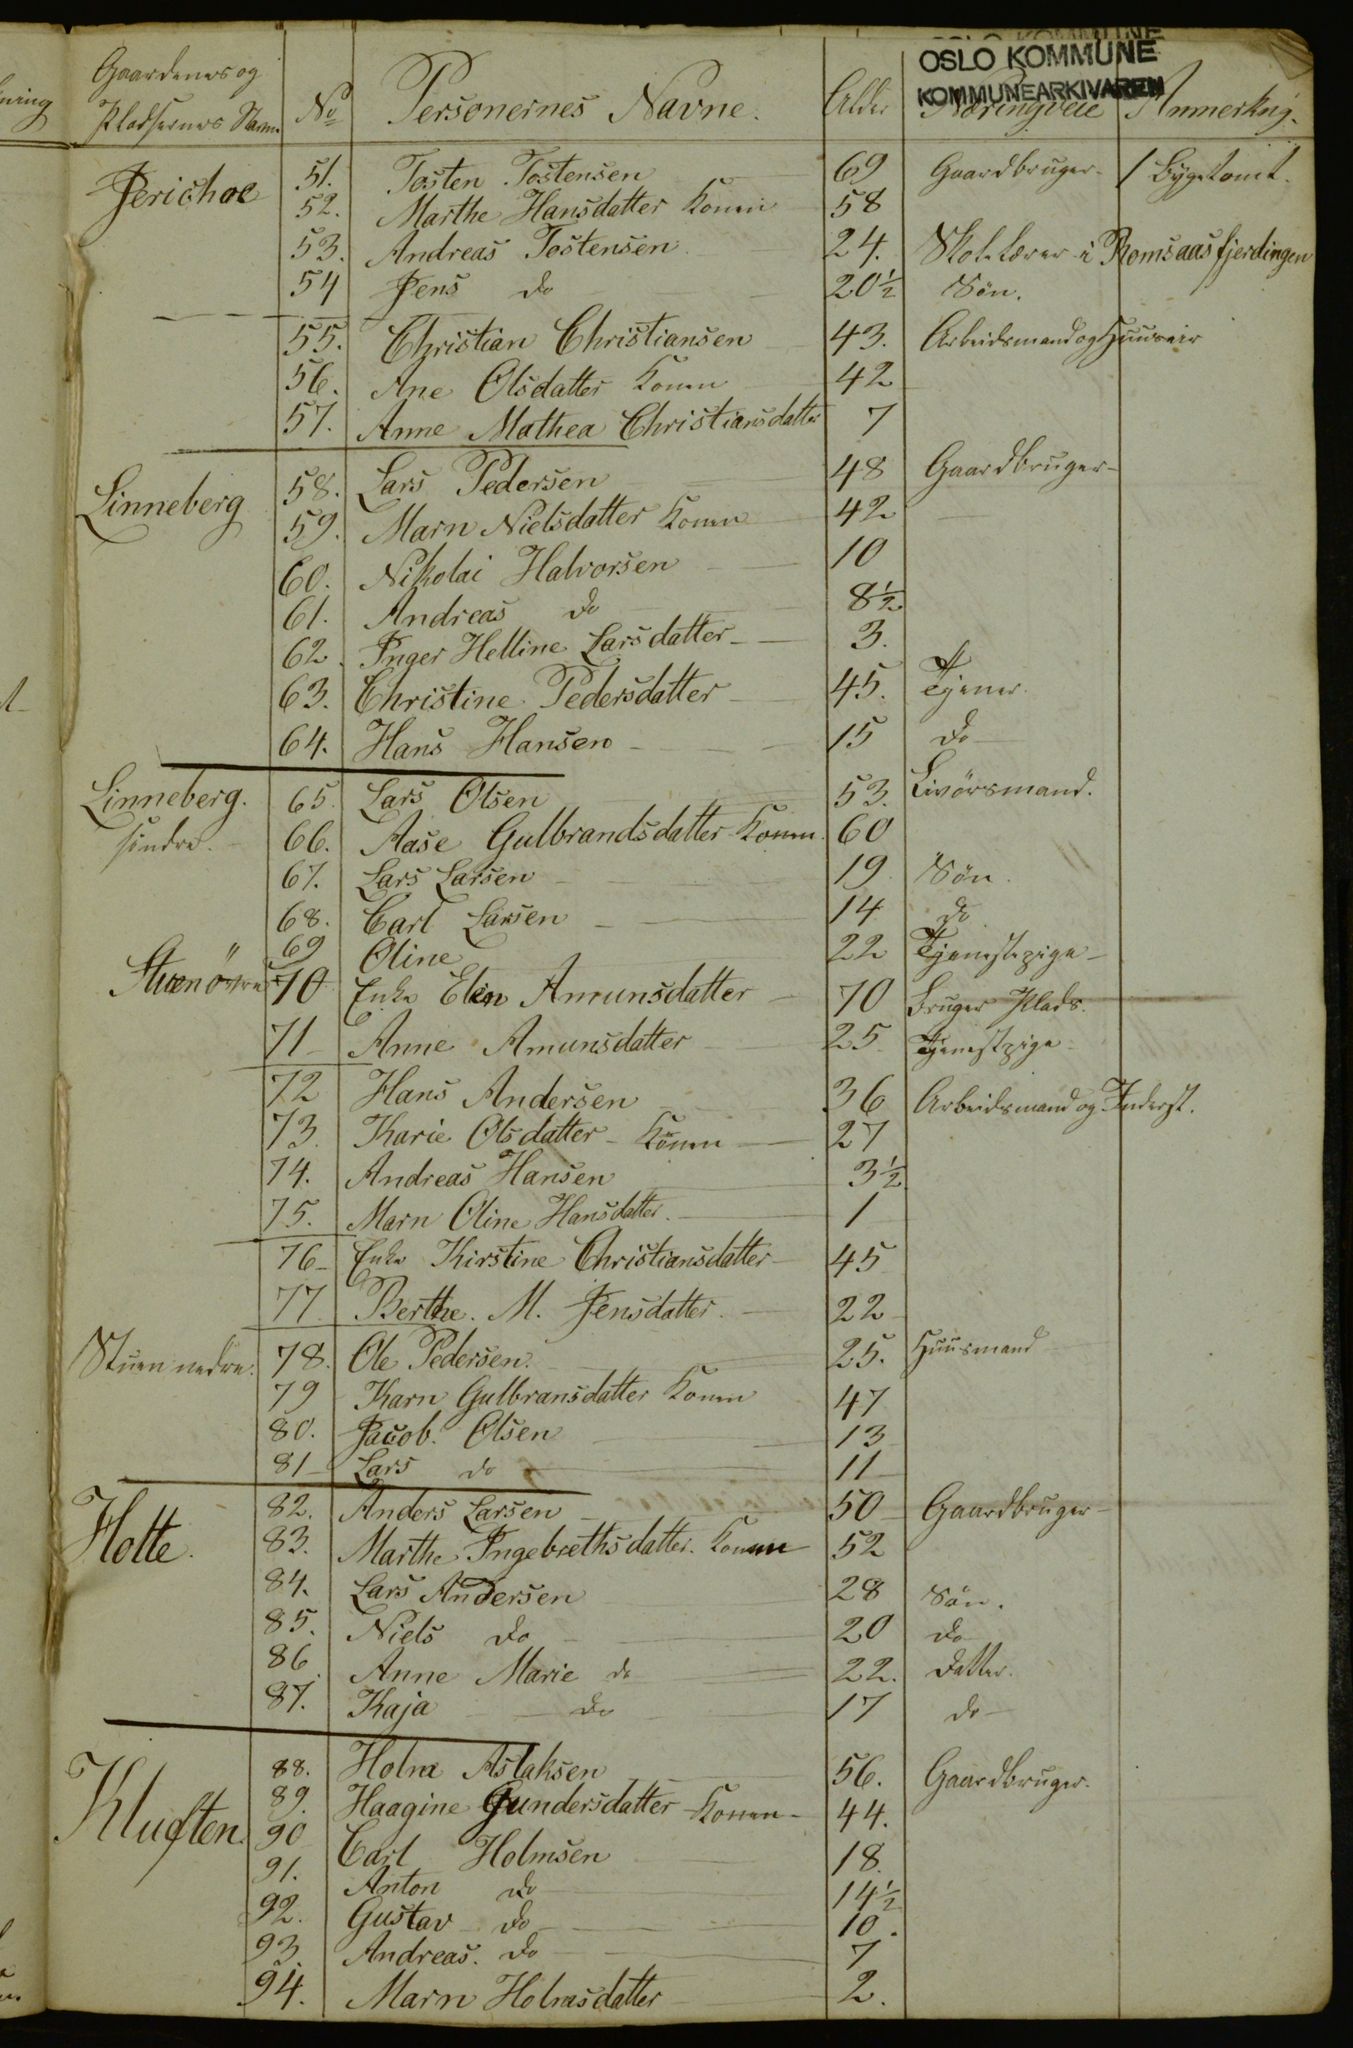 OSLO KOMMUNE
OSLO KOMMUNE
KOMMUNEARKIVAREN
Gaardenes og Pladsernes Navne No Personernes Navne. Alder Næringsveie Anmerkng.
Jerichoe 51. Tosten Tostensen 69 Gaardbruger. 1 Bygetomt.
52. Marthe Hansdatter Konen 58
53. Andreas Tostensen 24. Skolelærer i Romsaasfjerdingen
54 Jens do 20½ Søn.
55. Christian Christiansen 43. Arbeidsmand og Huuseier
56. Ane Olsdatter Konen 42
57. Anne Mathea Christiansdatter 7
Linneberg 58. Lars Pedersen 48 Gaardbruger
59. Marn Nielsdatter Konen 42
60. Nikolai Halvorsen 10
61. Andreas do 8½
62. Inger Helline Larsdatter 3.
63. Christine Pedersdatter 45. Tjener.
64. Hans Hansen 15 do
Linneberg. 65. Lars Olsen 53. Livørsmand.
søndre. 66. Aase Gulbrandsdatter Konen 60
67. Lars Larsen 19 Søn.
68. Carl Larsen 14 do
69 Oline 22 Tjenestepige
Stuen øvre 70 Enke Elen Amunsdatter 70 bruger Plads.
71 Anne Amunsdatter 25 Tjenestpige
72 Hans Andersen 36 Arbeidsmand og Inderst.
73. Karie Olsdatter Konen 27
74. Andreas Hansen 3½
75. Marn Oline Hansdatter. 1
76 Enke Kirstine Christiansdatter 45
77 Berthe. M. Jensdatter. 22
Stuen nedre. 78. Ole Pedersen. 25. Huusmand
79 Karn Gulbransdatter Konen 47
80. Jacob. Olsen 13
81 Lars do 11
Hotte. 82. Anders Larsen 50 Gaardbruger
83. Marthe Ingebrethsdatter. Konen 52
84. Lars Andersen 28 Søn.
85. Niels do 20 do
86 Anne Marie do 22. datter.
87. Kaja do 17 do
Kluften. 88. Holm Aslaksen 56. Gaardbruger.
89. Haagine Gundersdatter Konen 44.
90 Carl Holmsen 18
91. Anton do 14½
92. Gustav do 10.
93. Andreas. do 7
94. Marn Holmsdatter 2.